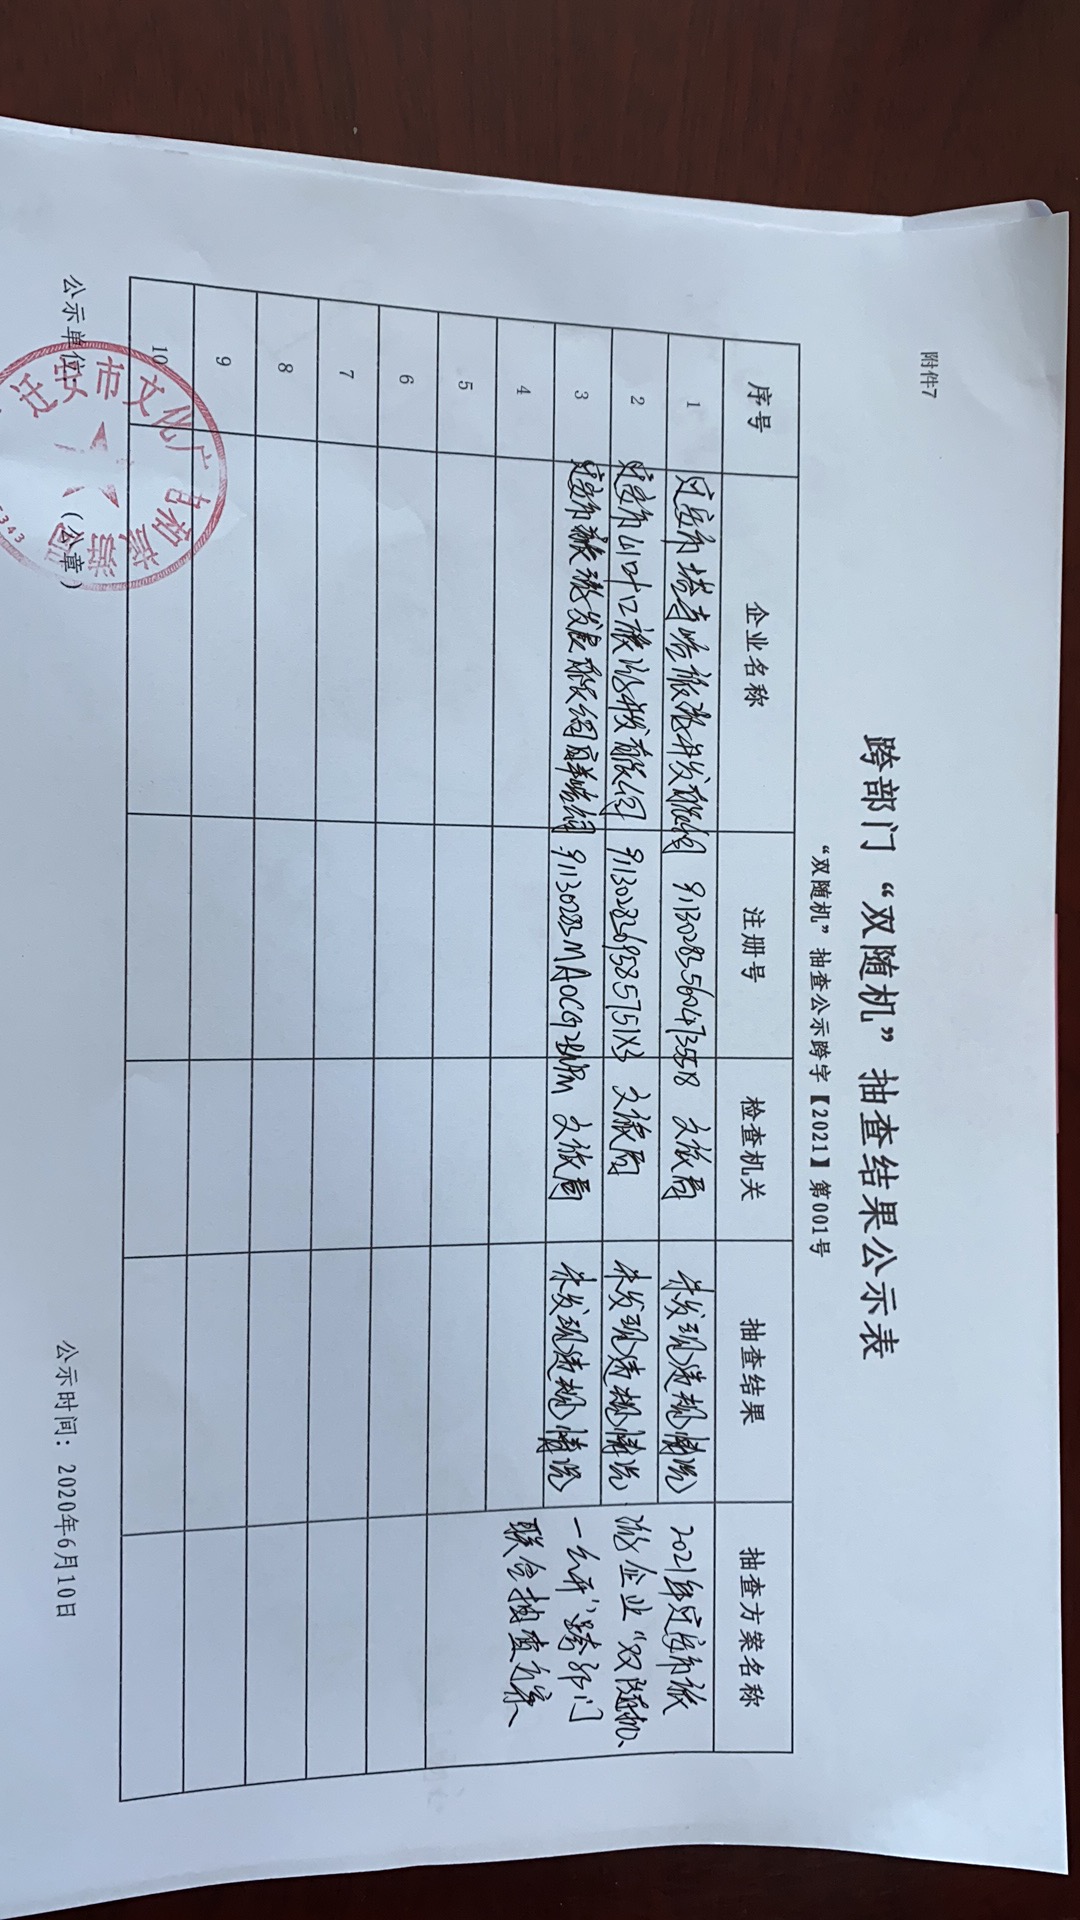 附件7
跨部门“双随机”抽查结果公示表
“双随机”抽查公示跨字【2021】第001号
序号 企业名称 注册号 检查机关 抽查结果 抽查方案名称
1 迁安市塔寺峪旅游开发有限公司 911302835604735518 文旅局 未发现违规情况
2 迁安市山叶口旅游开发有限公司 文旅局 未发现违规情况
3 迁安市旅游发展有限公司 文旅局 未发现违规情况
2021年迁安市旅
游企业“双随机、
一公开”跨部门
联合抽查方案
4
5
6
7
8
9
10
公示单位：（公章）
迁安市文化广电和旅游局
公示时间：2020年6月10日